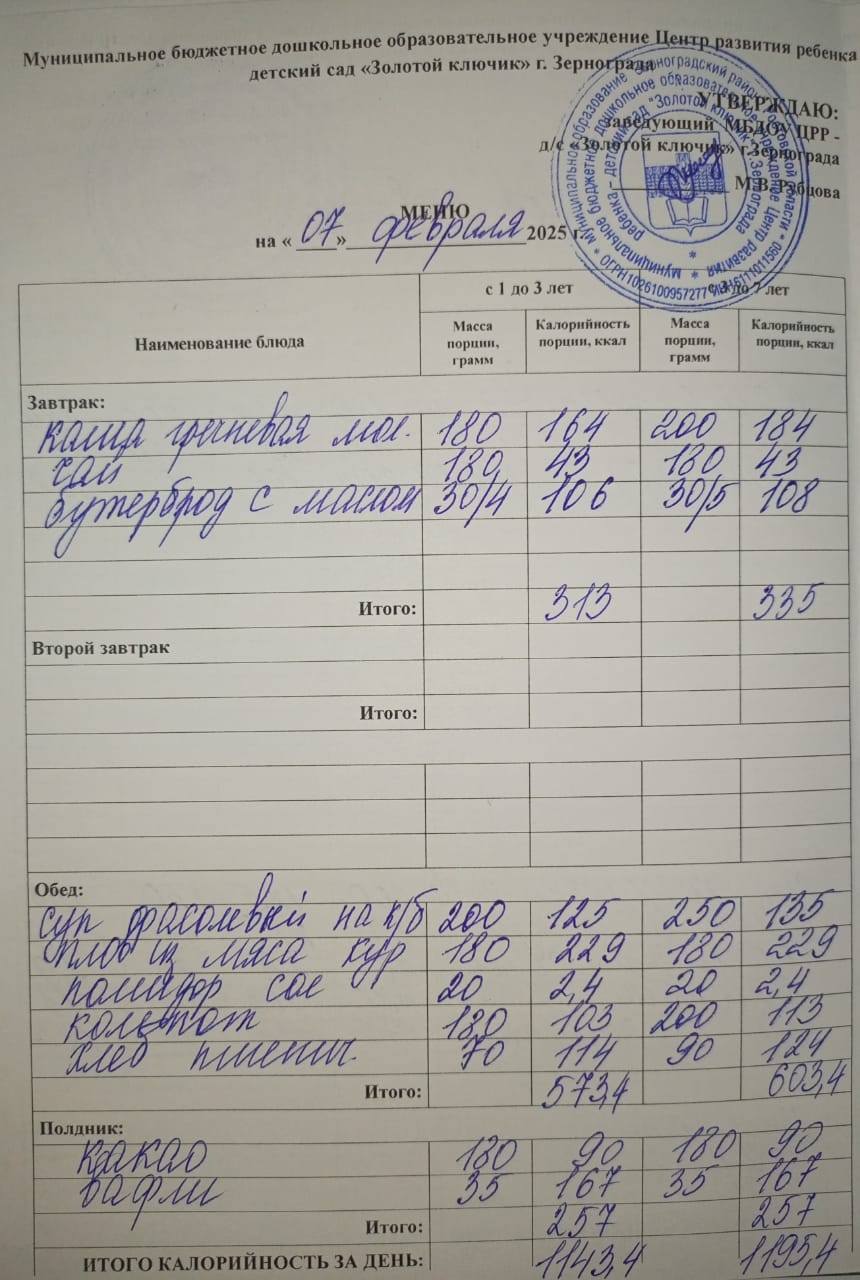 Муниципальное бюджетное дошкольное образовательное учреждение Центр развития ребенка
детский сад «Золотой ключик» г. Зернограда
УТВЕРЖДАЮ:
заведующий МБДОУ ЦРР -
д/с «Золотой ключик» г.Зернограда
М.В. Рябцова
МЕНЮ
на « 07 » февраля 2025 г.
Наименование блюда с 1 до 3 лет с 3 до 7 лет
Масса порции, грамм Калорийность порции, ккал Масса порции, грамм Калорийность порции, ккал
Завтрак:
каша гречневая мол. 180 164 200 184
чай 180 43 180 43
бутерброд с маслом 30/4 106 30/5 108
Итого: 313 335
Второй завтрак
Итого:
Обед:
суп фасолевый на к/б 200 125 250 135
плов из мяса кур 180 229 180 229
помидор сол 20 2,4 20 2,4
компот 180 103 200 113
хлеб пшенич. 70 114 90 124
Итого: 573,4 603,4
Полдник:
какао 180 90 180 90
вафли 35 167 35 167
Итого: 257 257
ИТОГО КАЛОРИЙНОСТЬ ЗА ДЕНЬ: 1143,4 1195,4